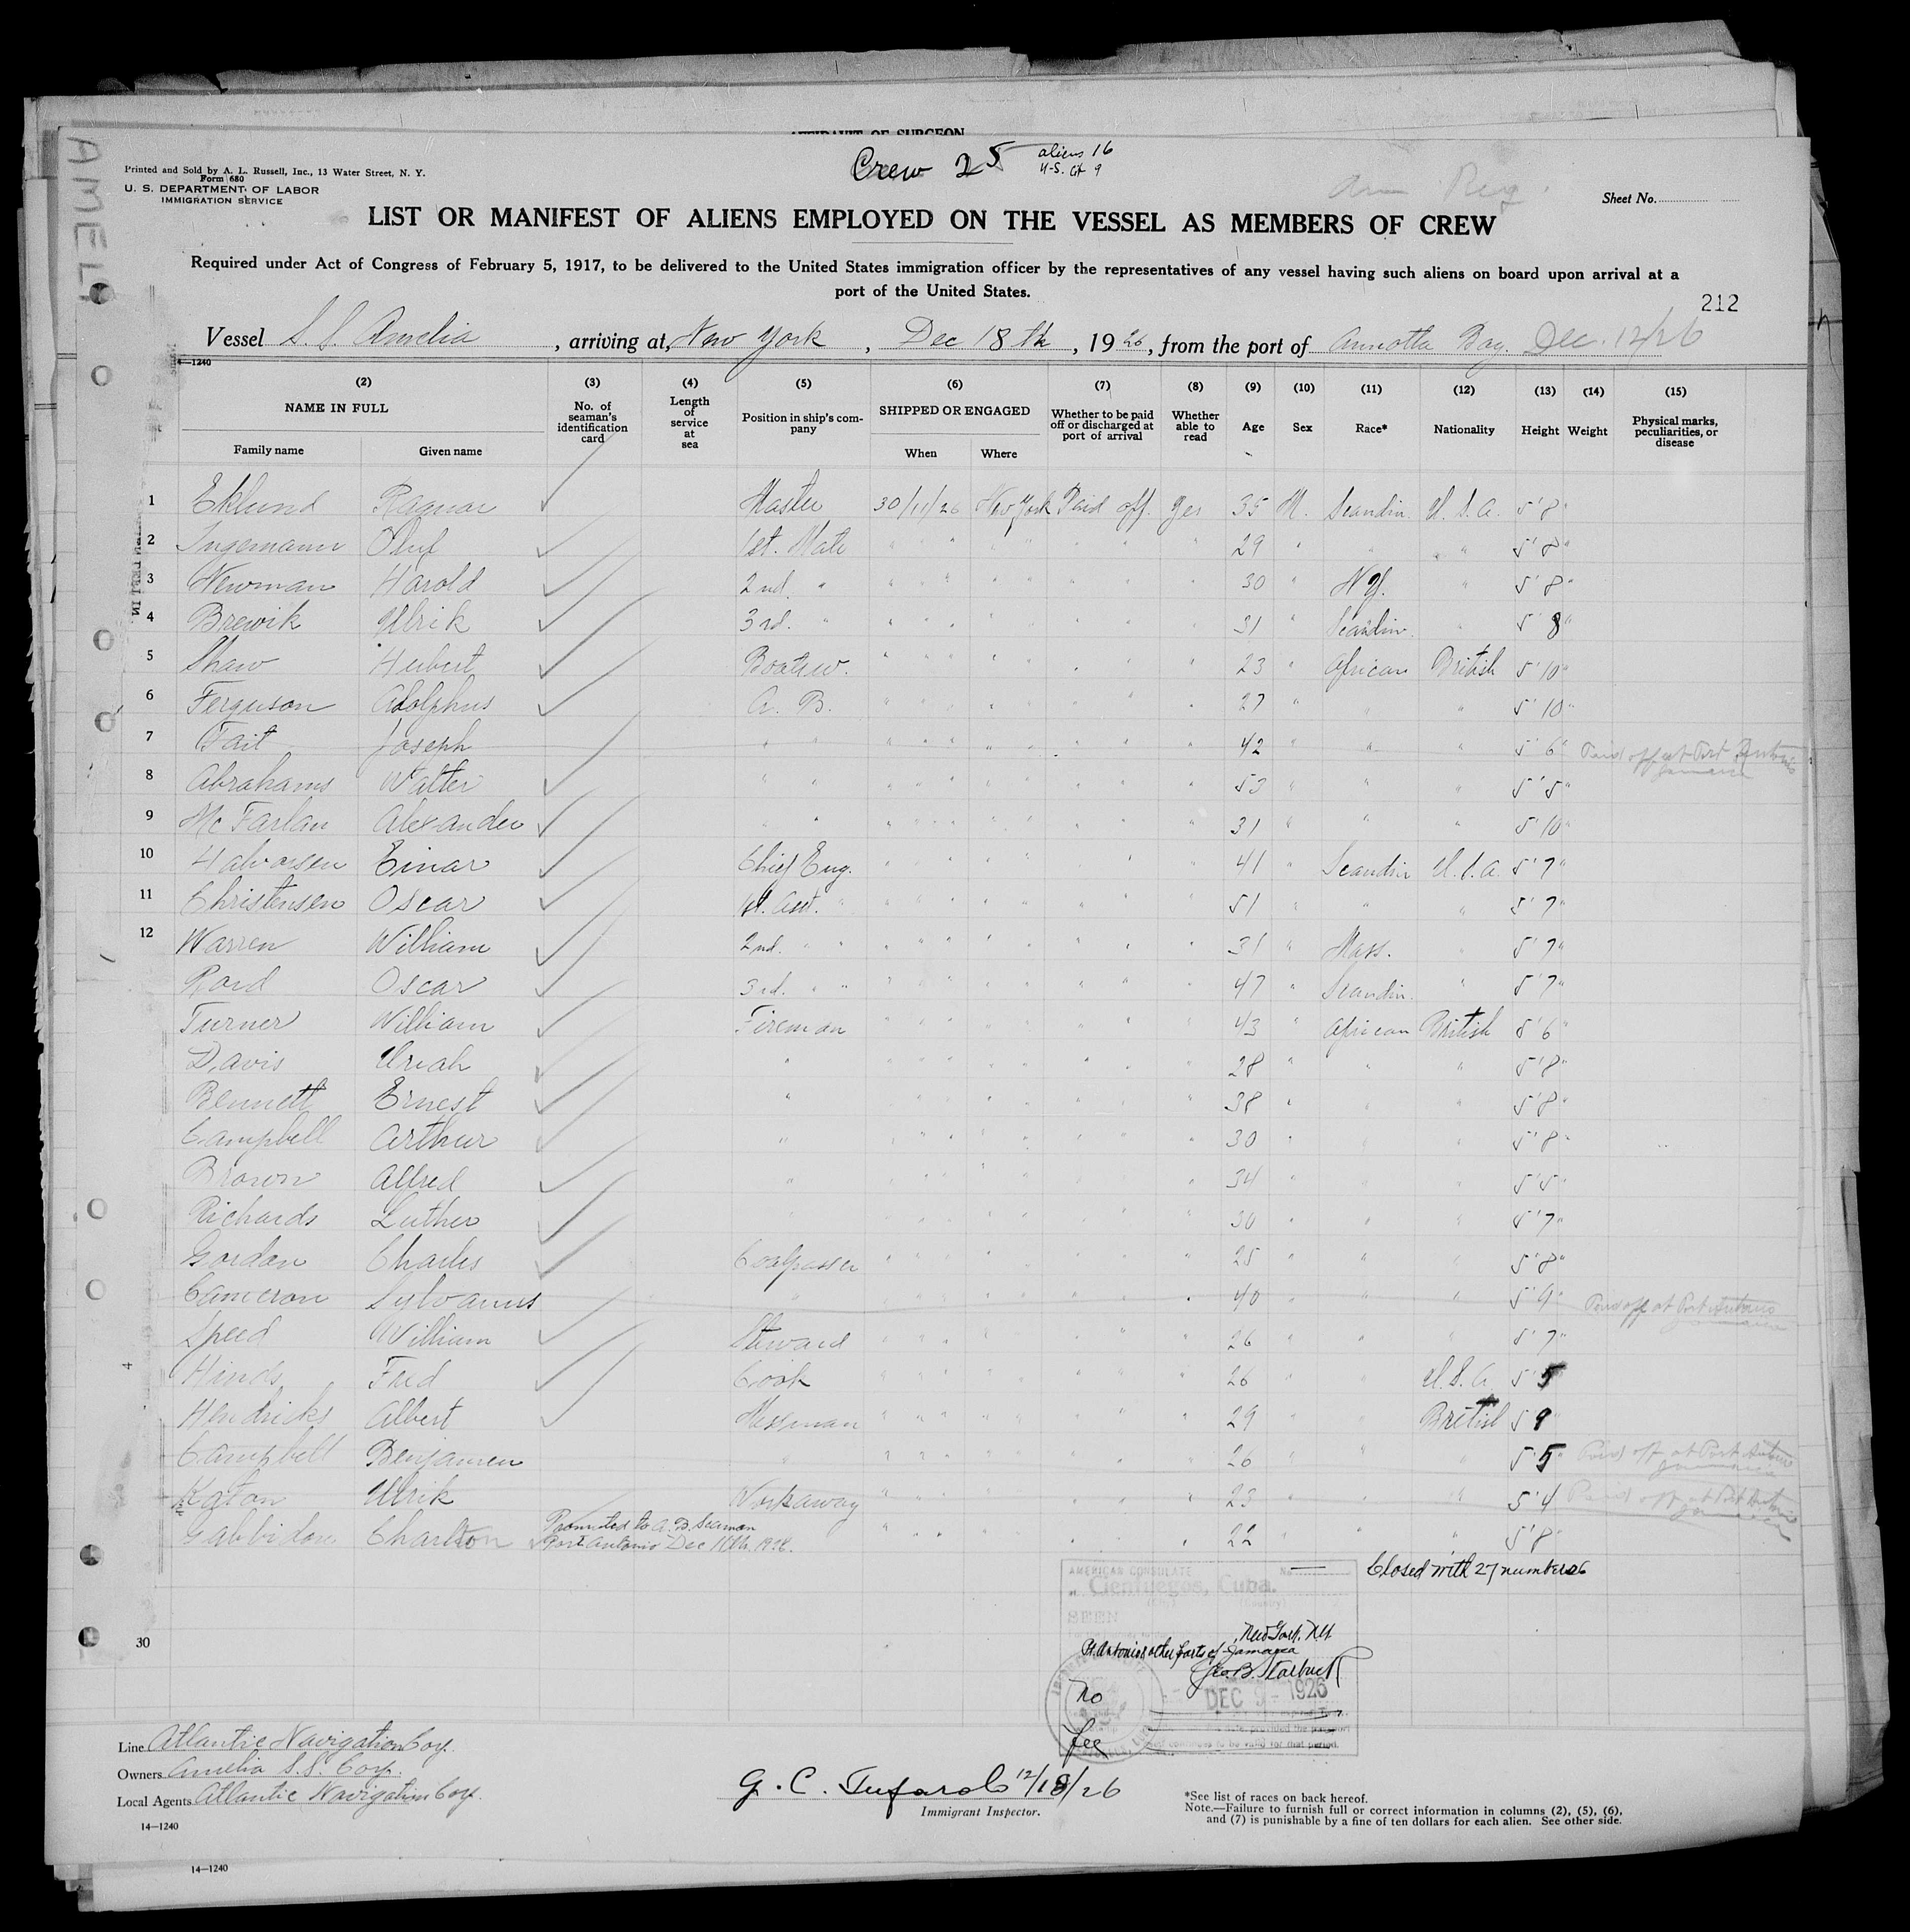 AMELI
AFFIDAVIT OF SURGEON
Crew 25 aliens 16
U.S. Cit 9
Printed and Sold by A. L. Russell, Inc., 13 Water Street, N. Y.
Form 680
U. S. DEPARTMENT OF LABOR
IMMIGRATION SERVICE
Sheet No.
LIST OR MANIFEST OF ALIENS EMPLOYED ON THE VESSEL AS MEMBERS OF CREW
Required under Act of Congress of February 5, 1917, to be delivered to the United States immigration officer by the representatives of any vessel having such aliens on board upon arrival at a
port of the United States.
212
Vessel S. S. Amelia, arriving at New York, Dec 18th, 1926, from the port of Annotta Bay. Dec. 12/26
4—1240
(2) (3) (4) (5) (6) (7) (8) (9) (10) (11) (12) (13) (14) (15)
NAME IN FULL No. of seaman's identification card Length of service at sea Position in ship's company SHIPPED OR ENGAGED Whether to be paid off or discharged at port of arrival Whether able to read Age Sex Race* Nationality Height Weight Physical marks, peculiarities, or disease
Family name Given name When Where
1 Eklund Ragnar Master 30/11/26 New York Paid off. Yes 35 M. Scandin. U. S. A. 5'8"
2 Ingemann Oluf 1st. Mate " " " " " " " " 29 " " " 5'8"
3 Newman Harold 2nd. " " " " " " " " " 30 " N.Y. " 5'8"
4 Brewik Ulrik 3rd. " " " " " " " " " 31 " Scandin. " 5'8"
5 Shaw Herbert Boatsw. " " " " " " " " 23 " African British 5'10"
6 Ferguson Adolphus A. B. " " " " " " " " 27 " " " 5'10"
7 Tait Joseph " " " " " " " " " " 42 " " " 5'6" Paid off at Port Antonio Jamaica
8 Abrahams Walter " " " " " " " " " " 53 " " " 5'5"
9 McFarlan Alexander " " " " " " " " " " 31 " " " 5'10"
10 Halvorsen Einar Chief Eng. " " " " " " " " 41 " Scandin U.S.A. 5'7"
11 Christensen Oscar 1st. Asst. " " " " " " " " " 51 " " " 5'7"
12 Warren William 2nd. " " " " " " " " " " 31 " Mass. " 5'7"
Rord Oscar 3rd. " " " " " " " " " " 47 " Scandin. " 5'7"
Turner William Fireman " " " " " " " " 43 " African British 5'6"
Davis Uriah " " " " " " " " " 28 " " " 5'8"
Bennett Ernest " " " " " " " " " 38 " " " 5'8"
Campbell Arthur " " " " " " " " " 30 " " " 5'8"
Brown Alfred " " " " " " " " " 34 " " " 5'5"
Richards Luther " " " " " " " " " 30 " " " 5'7"
Gordon Charles Coalpasser " " " " " " " " 25 " " " 5'8"
Cameron Sylvanus " " " " " " " " " 40 " " " 5'9" Paid off at Port Antonio Jamaica
Speed William Steward " " " " " " " " 26 " " " 5'7"
Hinds Fred Cook " " " " " " " " 26 " " U.S.A 5'5
Hendricks Albert Messman " " " " " " " " 29 " " British 5 9
Campbell Benjamen " " " " " " " " " 26 " " " 5'5" Paid off at Port Antonio Jamaica
Katon Ulrik Workaway " " " " " " " " 23 " " " 5'4 Paid off at Port Antonio Jamaica
Gabbidon Charlton Promoted to A. B. Seaman " " " " " " " 22 " " " 5'8"
Port Antonio Dec 11th. 1926.
Closed with 27 numbers
AMERICAN CONSULATE No.
Cienfuegos, Cuba.
(City) (Country)
SEEN
New York, N.Y.
Pt. Antonio & other ports of Jamaica
Geo. B. Starbuck
30
No
DEC 9 - 1926
fee
continues to be valid for that period.
Line Atlantic Navigation Corp.
Owners Amelia S.S. Corp.
Local Agents Atlantic Navigation Corp.
14—1240
G. C. Tufarolo 12/18/26
Immigrant Inspector.
*See list of races on back hereof.
Note.—Failure to furnish full or correct information in columns (2), (5), (6),
and (7) is punishable by a fine of ten dollars for each alien. See other side.
14—1240